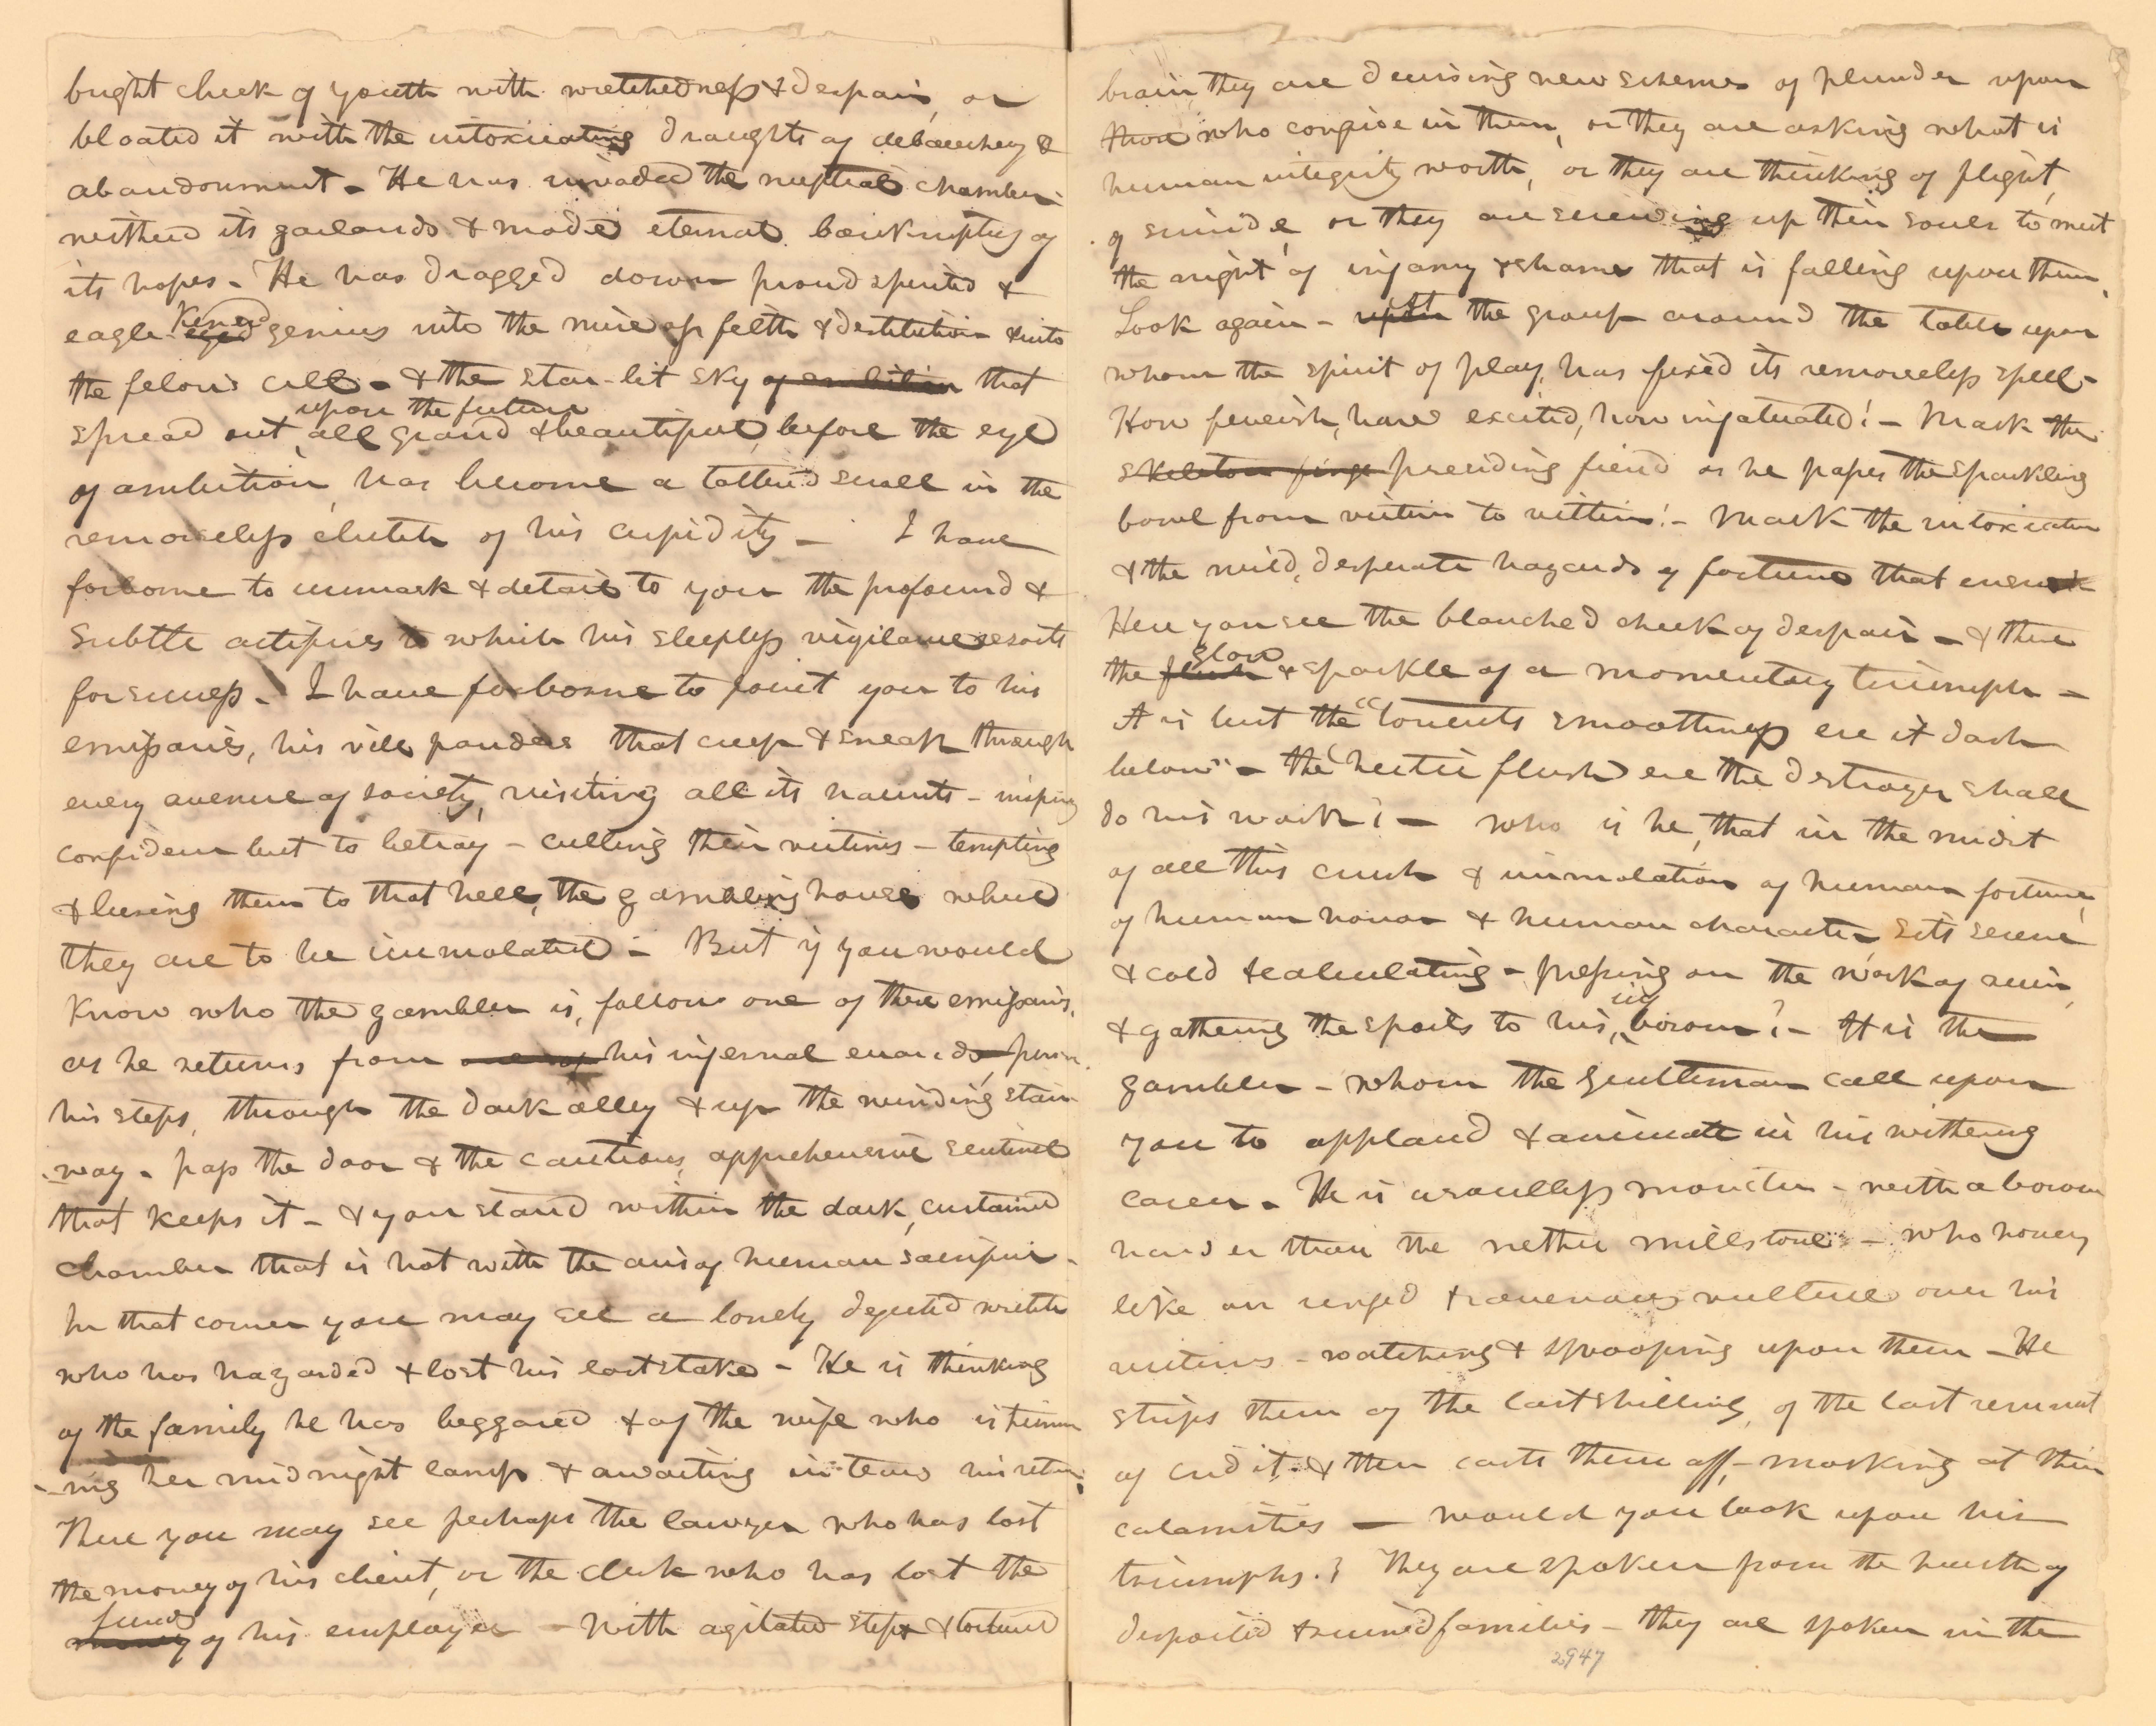 bright cheek of youth with wretchedness & despair, or
bloated it with the intoxicating draughts of debauchery &
abandonment - He has invaded the nuptial chamber
withered its garlands & made eternal bankruptcy of
its hopes - He has dragged down proud spirited &
kened
eagle-eyed genius into the mire of filth & destitution & into
the felon's cell - & the star-lit sky of ambition that
upon the future
spread out, all grand & beautiful, before the eye
of ambition, has become a tattered scroll in the
remorseless clutch of his cupidity - I have
forborne to unmask & detail to you the profound &
subtle artifices to which his sleepless vigilance resorts
for success. I have forborne to point you to his
emissaries, his vile panders that creep & sneak through
every avenue of society, visiting all its haunts - inspiring
confidence but to betray - culling their victims - tempting
& luring them to that hell, the gambling house where
they are to be immolated - But if you would
know who the gambler is, follow one of these emissaries,
as he returns from one of his infernal errands,
his steps, through the dark alley & up the winding stair
-way - pass the door & the cautious, apprehensive sentinel
that keeps it - & you stand within the dark, curtained
chamber that is hot with the airs of human sacrifice -
In that corner you may see a lonely dejected wretch
who has hazarded & lost his last stake - He is thinking
of the family he has beggared & of the wife who is trimm
-ing her midnight lamp & awaiting in tears his return.
There you may see perhaps the lawyer who has lost
the money of his client, or the clerk who has lost the
funds
money of his employer - With agitated steps & tortured
brain, they are devising new schemes of plunder upon
those who confide in them, or they are asking what is
human integrity worth, or they are thinking of flight,
of suicide, or they are screwing up their souls to meet
the night of infamy & shame that is falling upon them.
Look again - at the group around the table upon
whom the spirit of play, has fixed its remorseless spell -
How feverish, how excited, how infatuated! - Mark the
skeleton finge presiding fiend as he passes the sparkling
bowl from victim to victim! - Mark the intoxication
& the wild, desperate hazards of fortune that ensue
Here you see the blanched cheek of despair - & there
glow
the flush & sparkle of a momentary triumph -
It is but the "torrents smoothness ere it dash
below" - the hectic flush ere the destroyer shall
do his work! - Who is he, that in the midst
of all this crush & immolation of human fortune,
of human honor & human character - sits serene
& cold & calculating - pressing on the work of ruin,
icy
& gathering the spoils to his, bosom? - It is the
gambler - whom the gentleman call upon
you to applaud & animate in his withering
career - He is a soulless monster - with a bosom
harder than the nether millstone - who hovers
like an unfed & ravenous vulture over his
victims - watching & swooping upon them - He
strips them of the last shilling, of the last remnant
of credit - & then casts them off, - mocking at their
calamities - would you look upon his
triumphs.? They are spoken from the hearth of
despoiled & ruined families - they are spoken in the
2947